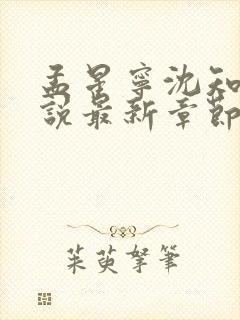 孟星寧沈知
說最新章節
茱萸拏筆